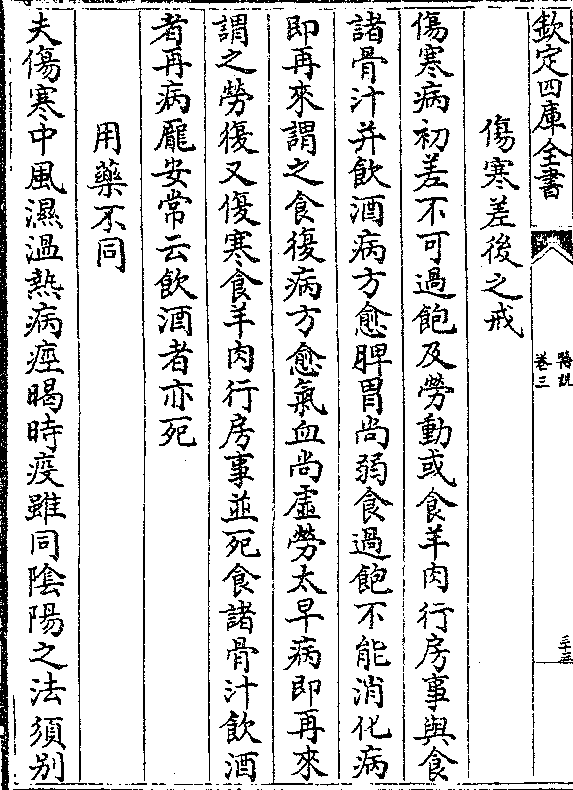 欽定四庫全書
醫說
卷三
三十三
傷寒差後之戒
傷寒病初差不可過飽及勞動或食羊肉行房事與食
諸骨汁并飲酒病方愈脾胃尚弱食過飽不能消化病
即再來謂之食復病方愈氣血尚虛勞太早病即再來
謂之勞復又傷寒食羊肉行房事並死食諸骨汁飲酒
者再病龎安常云飲酒者亦死
用藥不同
夫傷寒中風濕溫熱病痓暍時疫雖同陰陽之法須别